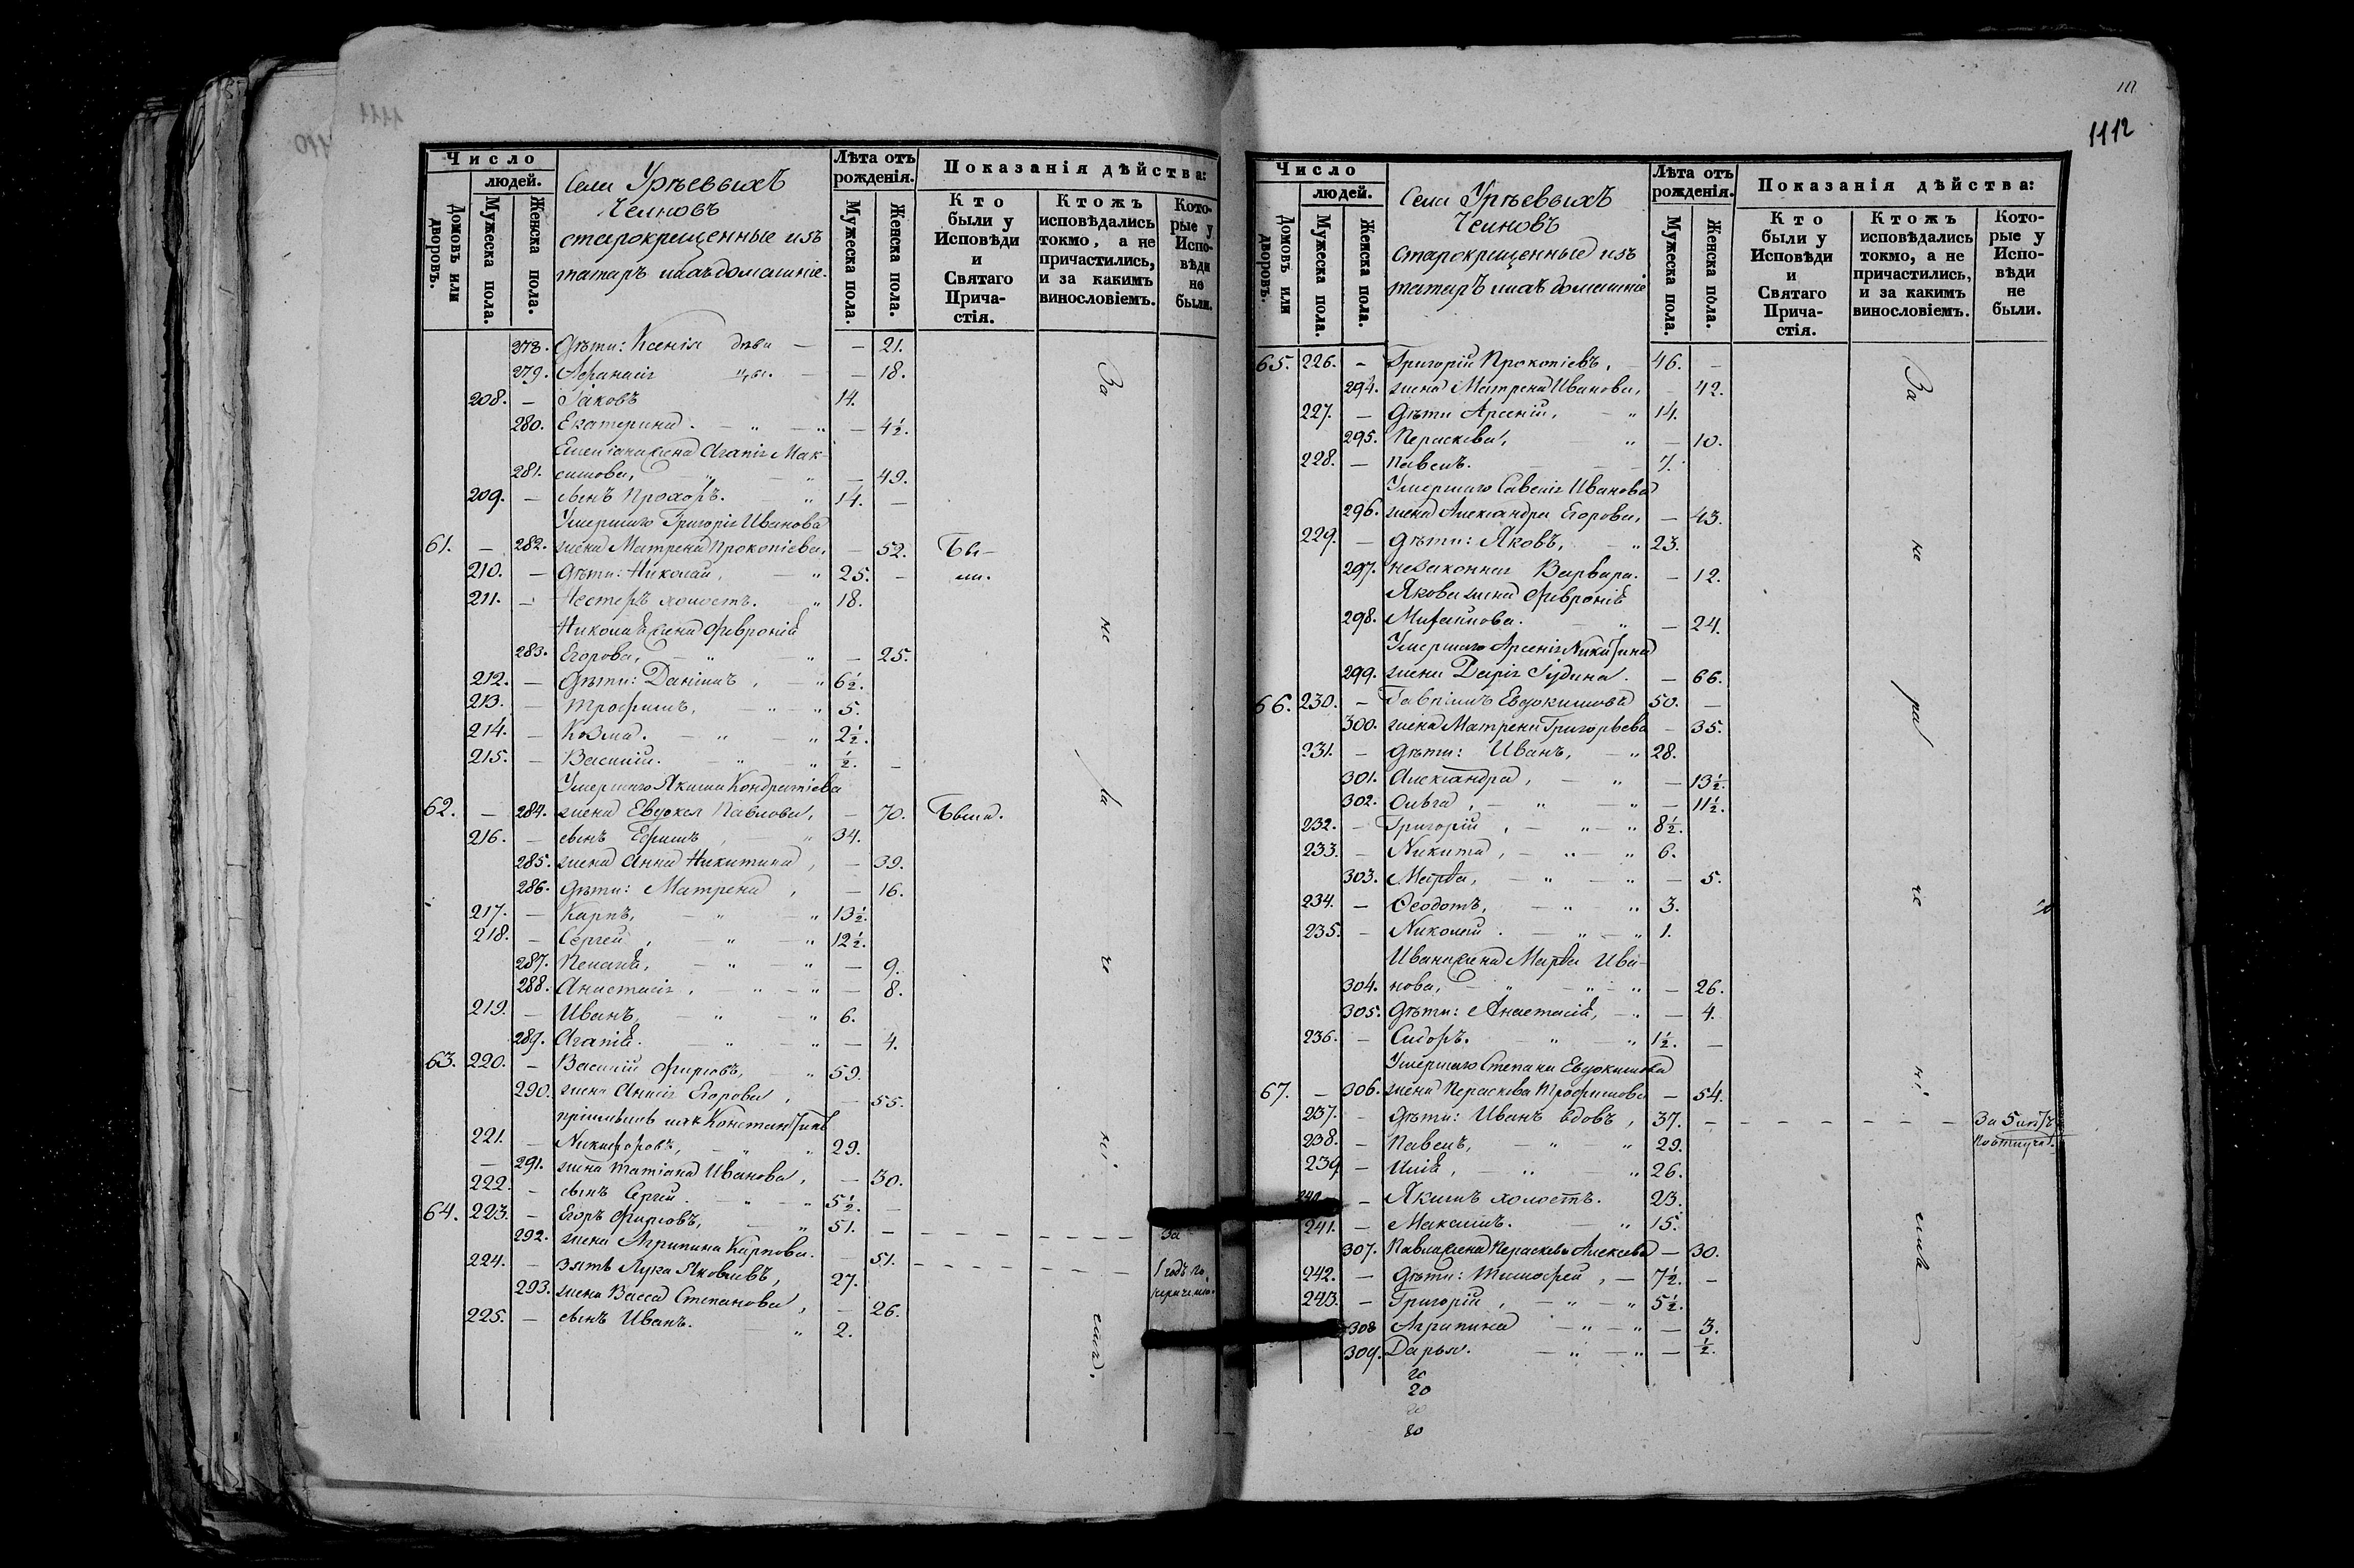 Число
людей.
Домовъ или дворовъ.
Мужеска пола.
Женска пола.
Села Урѣевыхъ
Челновъ
старокрещенные изъ
татаръ и ихъ домашніе.
Лѣта отъ рожденія.
Мужеска пола.
Женска пола.
Показанія дѣйства:
Кто были у Исповѣди и Святаго Причастія.
Ктожъ исповѣдались токмо, а не причастились, и за какимъ винословіемъ.
Которые у Исповѣди не были.
278. Дѣти: Ксенія дѣва — — 21.
279. Афанасія — — 18.
208. — Іаковъ 14.
280. Екатерина. — " — " — 4½.
жена Агапія Мак-
281. симова, " — " — 49.
209. — сынъ Прохоръ. — " 14. —
Умершаго Григорія Иванова
61. — 282. жена Матрена Прокопіева, — 52. Бы-
210. — Дѣти: Николай, — " 25. — ли.
211. — Нестеръ холостъ. " 18.
Николая жена Февронія
283. Егорова, — " " — 25.
212. — Дѣти: Даніилъ, — " 6½.
213. — Трофимъ, — " — " 5.
214. — Козма. — " — " 2½.
215. — Василій. — " — " ½. —
Умершаго Якима Кондратіева
62. — 284. жена Евдокея Павлова, — 70. Была.
216. — сынъ Ефимъ, — " 34.
285. жена Анна Никитина, — 39.
286. Дѣти: Матрена, — 16.
217. — Карпъ, — " — " 13½.
218. — Сергей, — " — " 12½.
287. Пелагія, — " — " — 9.
288. Анастасія, — " — " — 8.
219. — Иванъ, — " — " 6.
289. Агапія. — " — " — 4.
63. 220. — Василій Фирсовъ, — " 59.
290. жена Анисія Егорова, — 55.
пріимышъ ихъ Константинъ
221. — Никифоровъ, — " " 29.
— 291. жена Татіана Иванова, — 30.
222. — сынъ Сергей. — " — " 5½. —
64. 223. — Егоръ Фирсовъ, — " 51. — — — — — — За
292. жена Агрипина Карпова. — 51.
224. — зять Лука Яковлевъ, 27. — — — — — 1 годъ по
293. жена Васса Степанова, — 26.
225. — сынъ Иванъ. " 2.
За не ра че ні емъ.
1112
Число
людей.
Домовъ или дворовъ.
Мужеска пола.
Женска пола.
Села Урѣевыхъ
Челновъ
старокрещенные изъ
татаръ и ихъ домашніе
Лѣта отъ рожденія.
Мужеска пола.
Женска пола.
Показанія дѣйства:
Кто были у Исповѣди и Святаго Причастія.
Ктожъ исповѣдались токмо, а не причастились, и за какимъ винословіемъ.
Которые у Исповѣди не были.
65. 226. — Григорій Прокопіевъ, — 46. —
294. жена Матрена Иванова, — 42.
227. — Дѣти Арсеній, — " 14.
295. Параскева, — " — 10.
228. — Павелъ. — — 7.
Умершаго Савелія Иванова
296. жена Александра Егорова, — 43.
229. — Дѣти: Яковъ, — " 23.
297. незаконная Варвара. — 12.
Якова жена Февронія
298. Михайлова. — " — 24.
Умершаго Арсенія Никитина
299. жена Дарія Іудина. — 66.
66. 230. — Гавріилъ Евдокимовъ 50. —
300. жена Матрена Григорьева — 35.
231. — Дѣти: Иванъ, — " 28.
301. Александра, — " — 13½.
302. Ольга, — " — " — 11½.
232. — Григорій, — " — " 8½.
233. — Никита, — " — " 6.
303. Марѳа, — " — " — 5.
234. — Ѳеодотъ, — " — " 3.
235. — Николай. — " — " 1.
Ивана жена Марѳа Ива-
304. нова, — " — " — " — 26.
305. Дѣти: Анастасія, — " — 4.
236. — Сидоръ. — " — " 1½. —
Умершаго Степана Евдокимова
67. — 306. жена Параскева Трофимова — 54.
237. — Дѣти: Иванъ вдовъ, 37. — — — — — — — За 5 лѣтъ
238. — Павелъ, — " — " 29.
239. — Илія, — " — " 26.
240. — Якимъ холостъ. 23.
241. — Максимъ. — " 15.
307. Павла жена Параскева Алексѣева — 30.
242. — Дѣти: Тимофей, — 7½. —
243. — Григорій, — " — " 5½.
308 Агрипина — " — " — 3.
309. Дарья. — " — " — ½.
20
20
20
80
За не ра че ні емъ